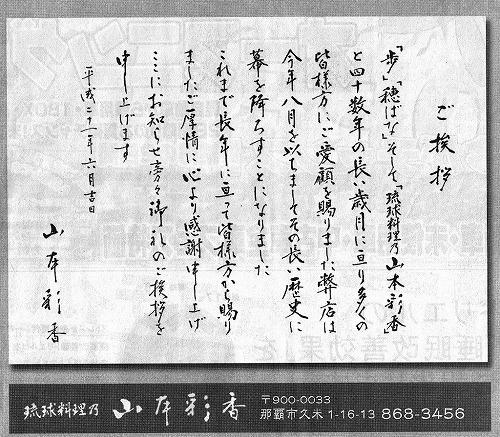 ご挨拶
「歩」「穂ばな」そして「琉球料理乃山本彩香」
と四十数年の長い歳月に亘り多くの
皆様方にご愛顧を賜りました弊店は
今年八月を以ちましてその長い歴史に
幕を降ろすことになりました
これまで長年に亘って皆様方から賜り
ましたご厚情に心より感謝申し上げ
ここにお知らせ旁々御礼のご挨拶を
申し上げます
平成二十一年六月吉日
山本彩香
琉球料理乃 山本彩香
〒900-0033
那覇市久米1-16-13 868-3456